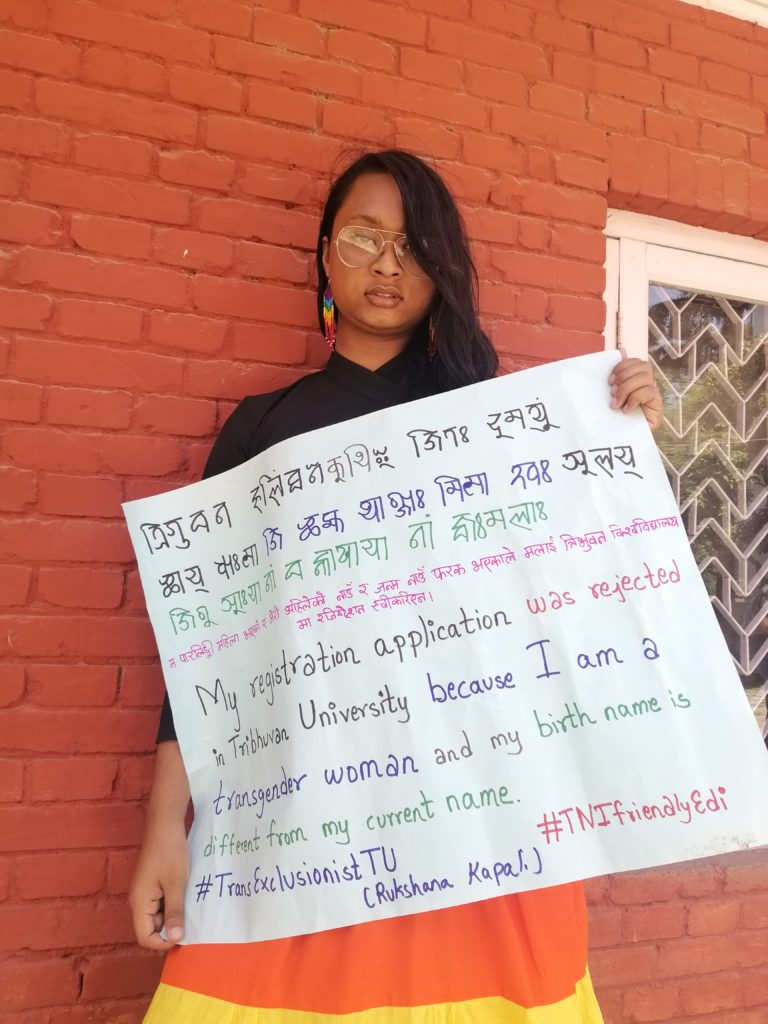 𑐟𑑂𑐬𑐶𑐨𑐸𑐰𑐣 𑐖𑐶𑐟𑑅
𑐕𑐵𑐫𑑂 𑐢𑐵𑑅𑐳𑐵 𑐖𑐶 𑐩𑐶𑐳𑐵
𑐣𑐵𑑄 𑐰 𑐣𑐵𑑄
म पारलिङ्गी महिला भएको र मेरो अहिलेको नाउँ र जन्म नाउँ फरक भएकाले मलाई त्रिभुवन विश्वविद्यालय
मा रजिष्ट्रेशन स्वीकारिएन।
My registration application was rejected
in Tribhuvan University because I am a
transgender woman and my birth name is
different from my current name.
#TransExclusionistTU #TNIfriendlyEdi
(Rukshana Kapali)